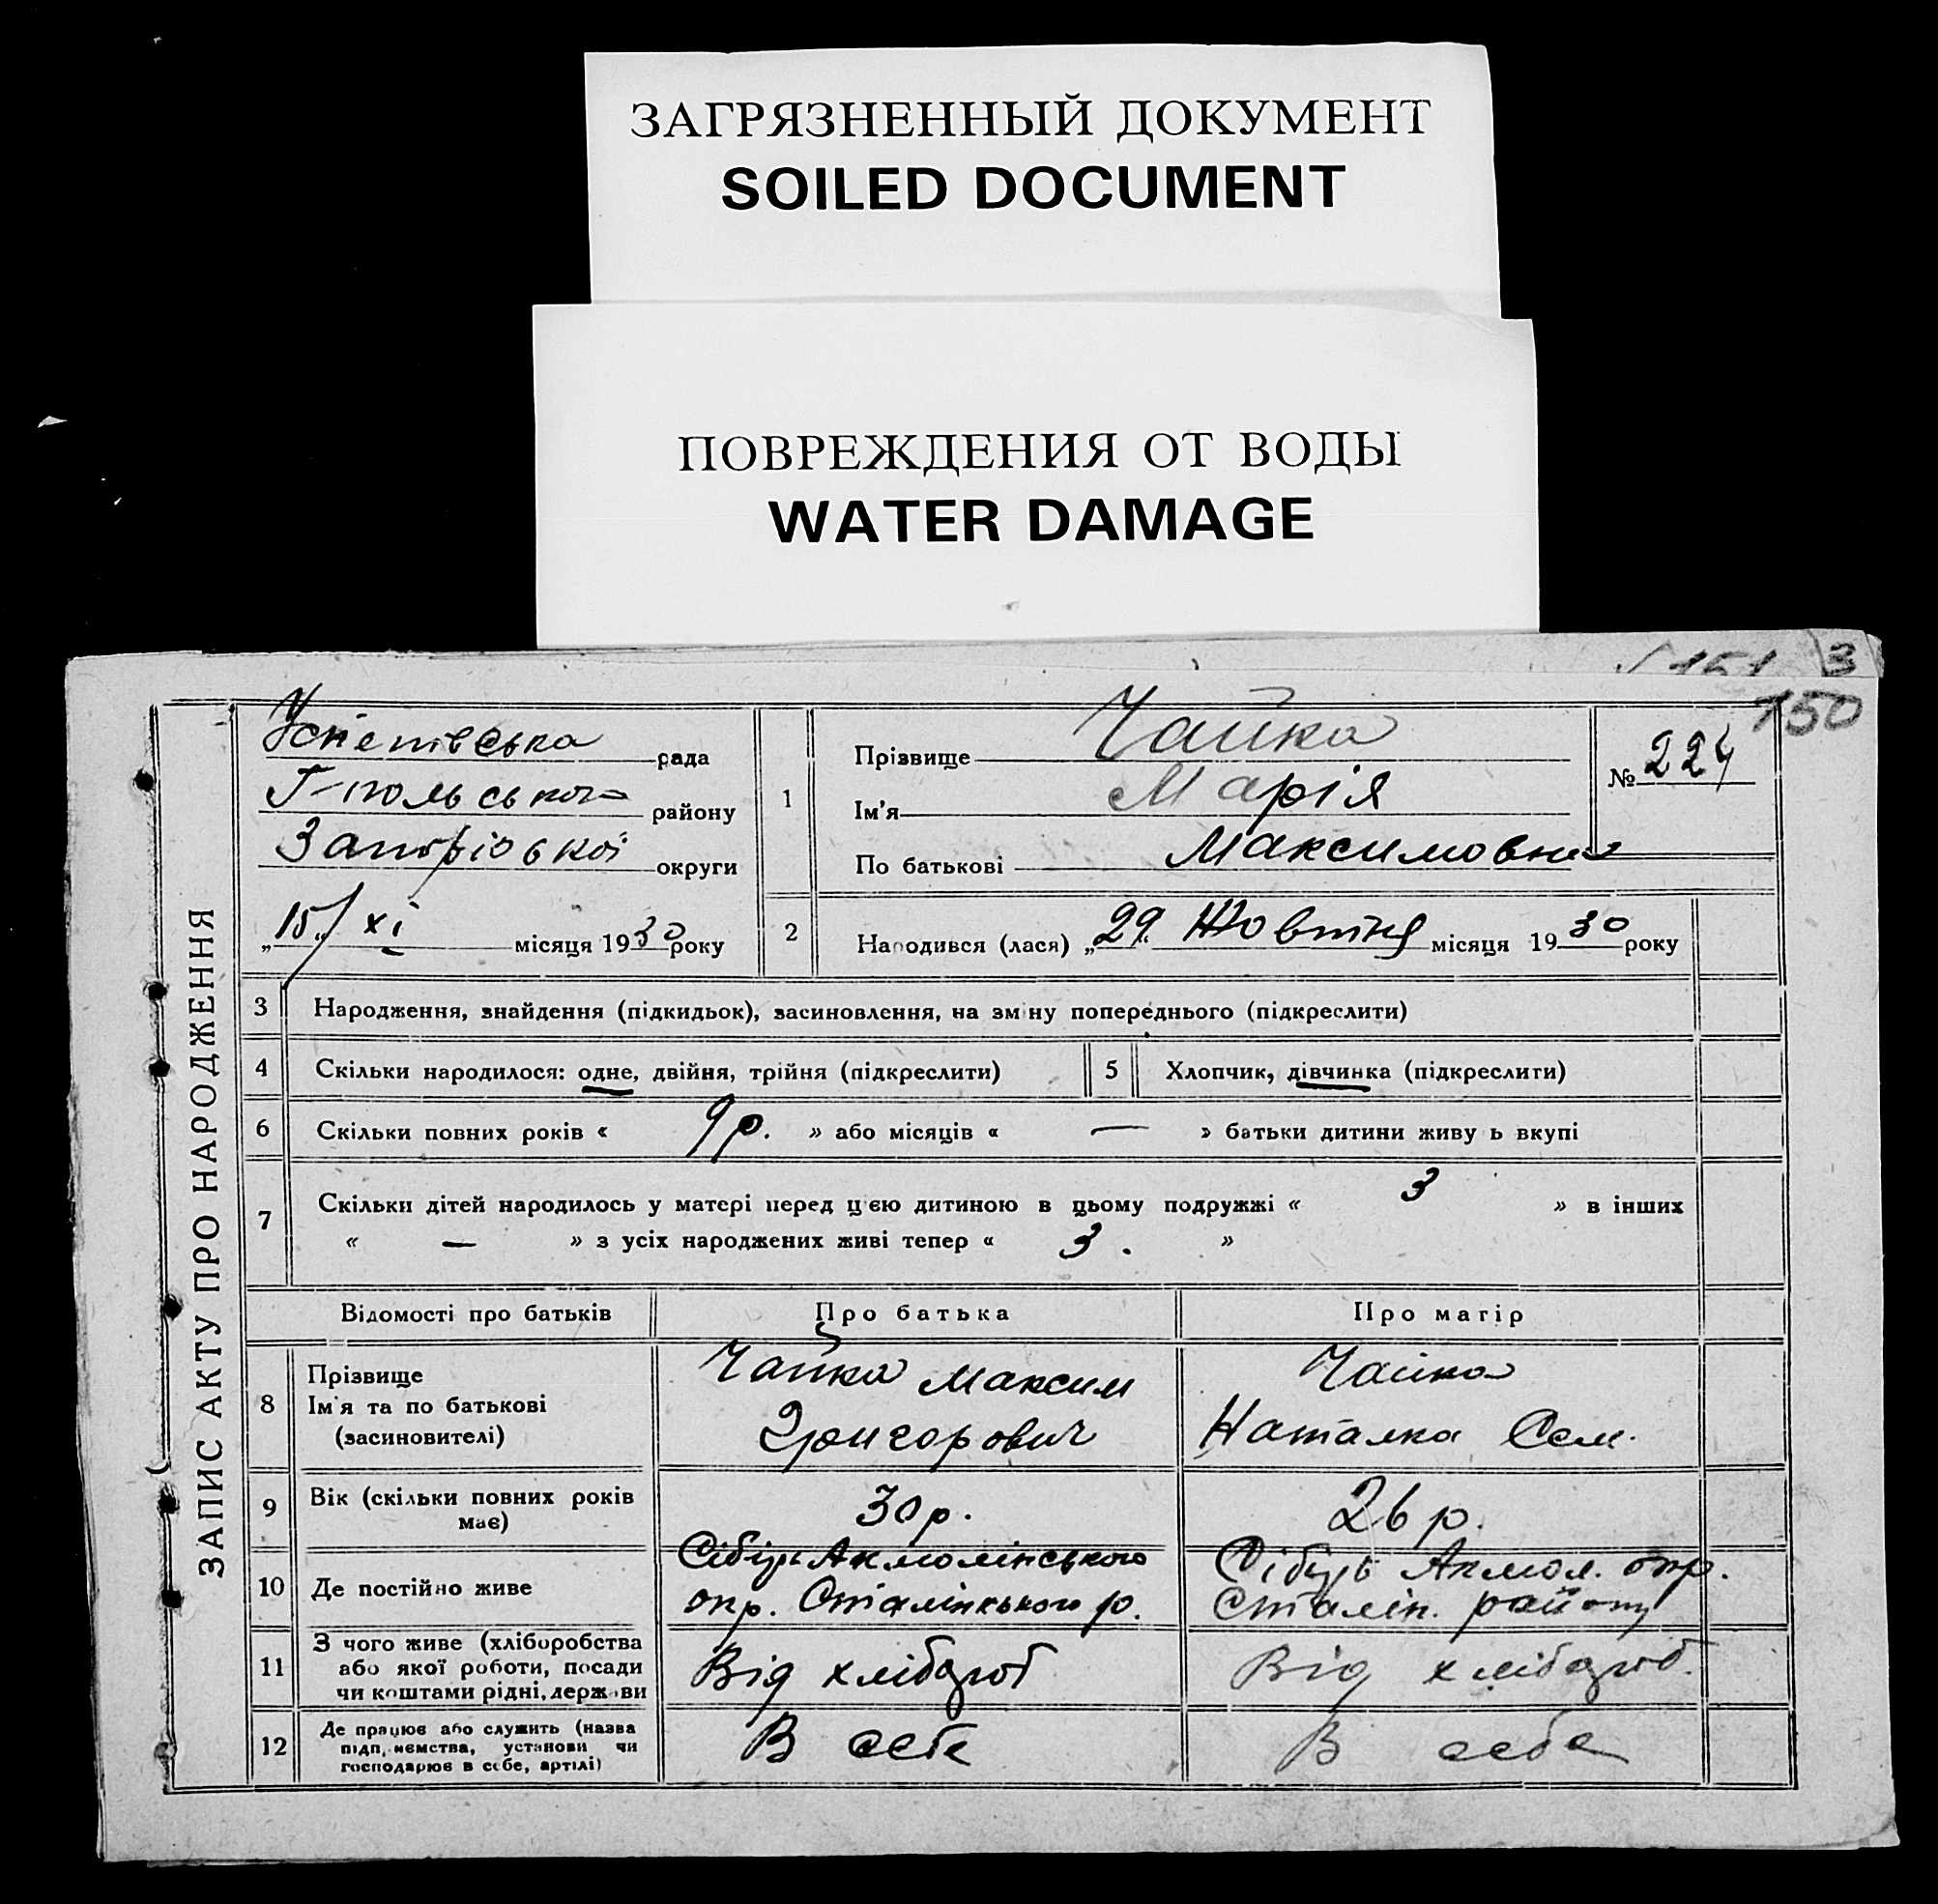 ЗАГРЯЗНЕННЫЙ ДОКУМЕНТ
SOILED DOCUMENT
ПОВРЕЖДЕНИЯ ОТ ВОДЫ
WATER DAMAGE
151 3
150
ЗАПИС АКТУ ПРО НАРОДЖЕННЯ
Успенівська рада
Г-польського району
Запорізької округи
„15" XI місяця 1930 року
1 Прізвище Чайка
Ім'я Марія
По батькові Максимовна
№ 224
2 Народився (лася) „29" Жовтня місяця 1930 року
3 Народження, знайдення (підкидьок), засиновлення, на зміну попереднього (підкреслити)
4 Скільки народилося: одне, двійня, трійня (підкреслити) 5 Хлопчик, дівчинка (підкреслити)
6 Скільки повних років « 9 р. » або місяців « — » батьки дитини живуть вкупі
7 Скільки дітей народилось у матері перед цією дитиною в цьому подружжі « 3 » в інших
« — » з усіх народжених живі тепер « 3. »
Відомості про батьків Про батька Про матір
8 Прізвище
Ім'я та по батькові
(засиновителі)
Чайка Максим
Григорович
Чайка
Наталка Сем.
9 Вік (скільки повних років
має)
30 р.
26 р.
10 Де постійно живе
Сібірь Акмолінського
окр. Сталінського р.
Сібірь Акмол. окр.
Сталін. району
11 З чого живе (хліборобства
або якої роботи, посади
чи коштами рідні, держави
Від хлібороб
Від хлібороб.
12 Де працює або служить (назва
підприємства, установи чи
господарює в себе, артілі)
В себе
В себе